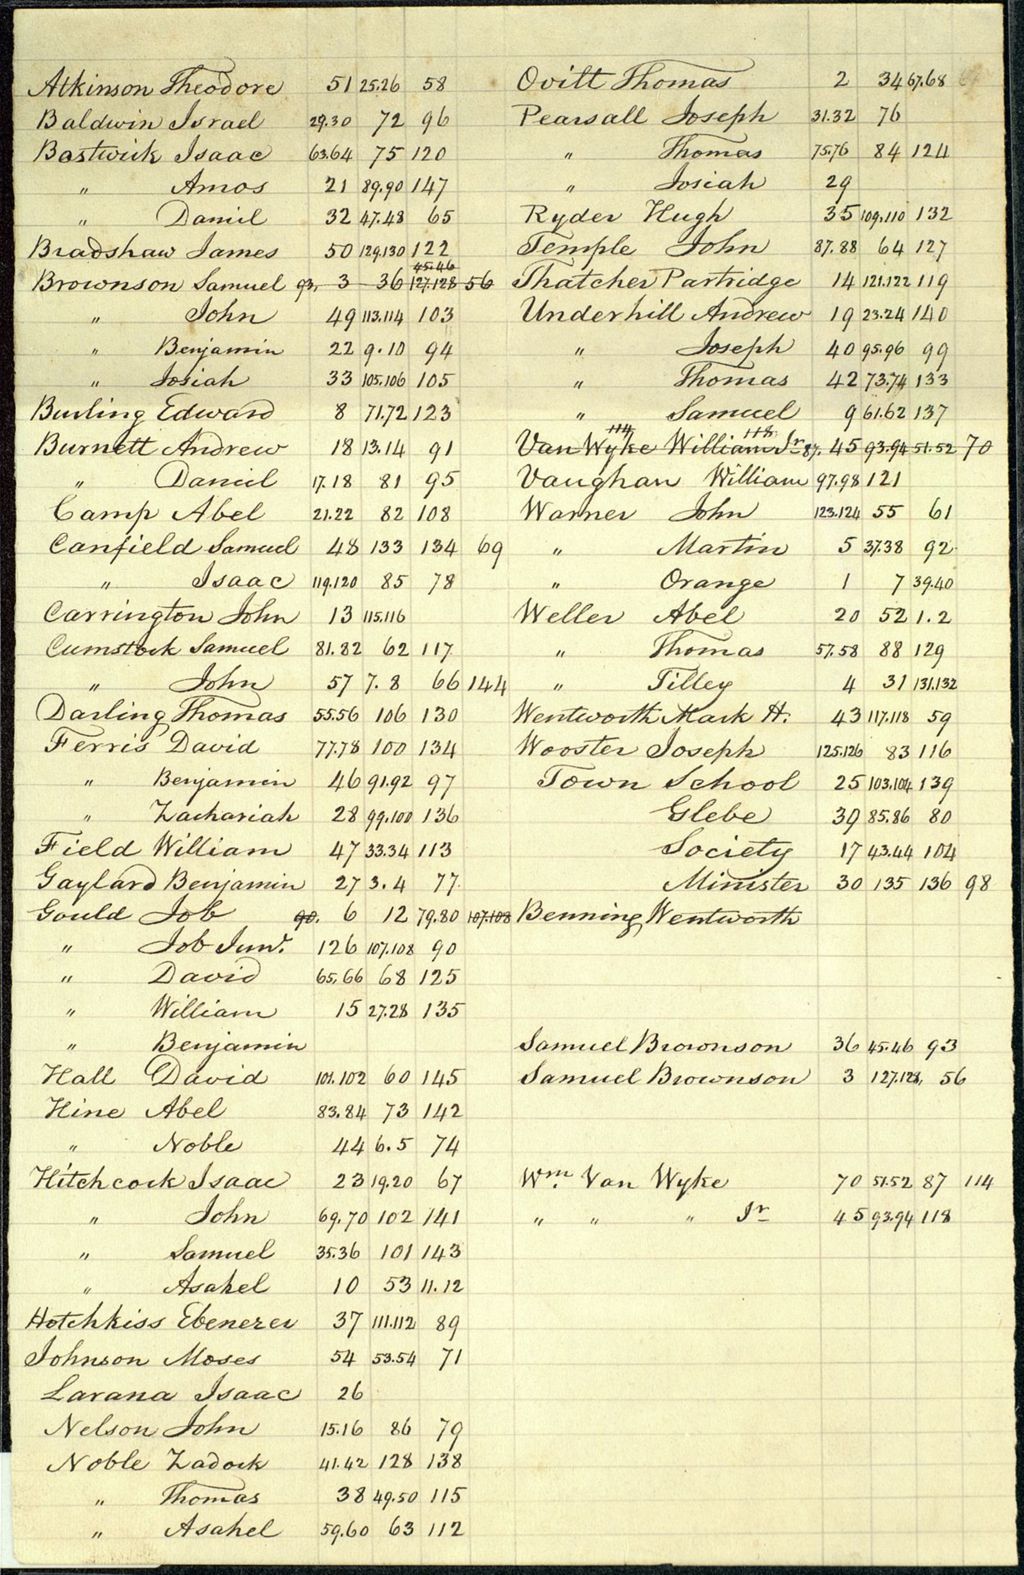 Atkinson Theodore 51 25.26 58
Baldwin Israel 29.30 72 96
Bostwick Isaac 63.64 75 120
" Amos 21 89.90 147
" Daniel 32 47.48 65
Bradshaw James 50 129.130 122
45.46
Brownson Samuel 93, 3 36 127.128 56
" John 49 113.114 103
" Benjamin 22 9.10 94
" Josiah 33 105.106 105
Burling Edward 8 71.72 123
Burnett Andrew 18 13.14 91
" Daniel 17.18 81 95
Camp Abel 21.22 82 108
Canfield Samuel 48 133 134 69
" Isaac 119.120 85 78
Carrington John 13 115.116
Cumstock Samuel 81.82 62 117
" John 57 7.8 66 144
Darling Thomas 55.56 106 130
Ferris David 77.78 100 134
" Benjamin 46 91.92 97
" Zachariah 28 99.100 136
Field William 47 33.34 113
Gaylard Benjamin 27 3.4 77
Gould Job 90, 6 12 79.80 107.108
" Job Junr. 126 107.108 90
" David 65.66 68 125
" William 15 27.28 135
" Benjamin
Hall David 101.102 60 145
Hine Abel 83.84 73 142
" Noble 44 6.5 74
Hitchcock Isaac 23 19.20 67
" John 69.70 102 141
" Samuel 35.36 101 143
" Asahel 10 53 11.12
Hotchkiss Ebenezer 37 111.112 89
Johnson Moses 54 53.54 71
Larana Isaac 26
Nelson John 15.16 86 79
Noble Zadock 41.42 128 138
" Thomas 38 49.50 115
" Asahel 59.60 63 112
Ovitt Thomas 2 34 67.68
Pearsall Joseph 31.32 76
" Thomas 75.76 84 124
" Josiah 29
Ryder Hugh 35 109.110 132
Temple John 87.88 64 127
Thatcher Partridge 14 121.122 119
Underhill Andrew 19 23.24 140
" Joseph 40 95.96 99
" Thomas 42 73.74 133
" Samuel 9 61.62 137
114 118
Van Wyke William Jr 87. 45 93.94 51.52 70
Vaughan William 97.98 121
Warner John 123.124 55 61
" Martin 5 37.38 92
" Orange 1 7 39.40
Weller Abel 20 52 1.2
" Thomas 57.58 88 129
" Tilley 4 31 131.132
Wentworth Mark H. 43 117.118 59
Wooster Joseph 125.126 83 116
Town School 25 103.104 139
Glebe 39 85.86 80
Society 17 43.44 104
Minister 30 135 136 98
Benning Wentworth
Samuel Brownson 36 45.46 93
Samuel Brownson 3 127.128, 56
Wm. Van Wyke 70 51.52 87 114
" " " Jr 45 93.94 118